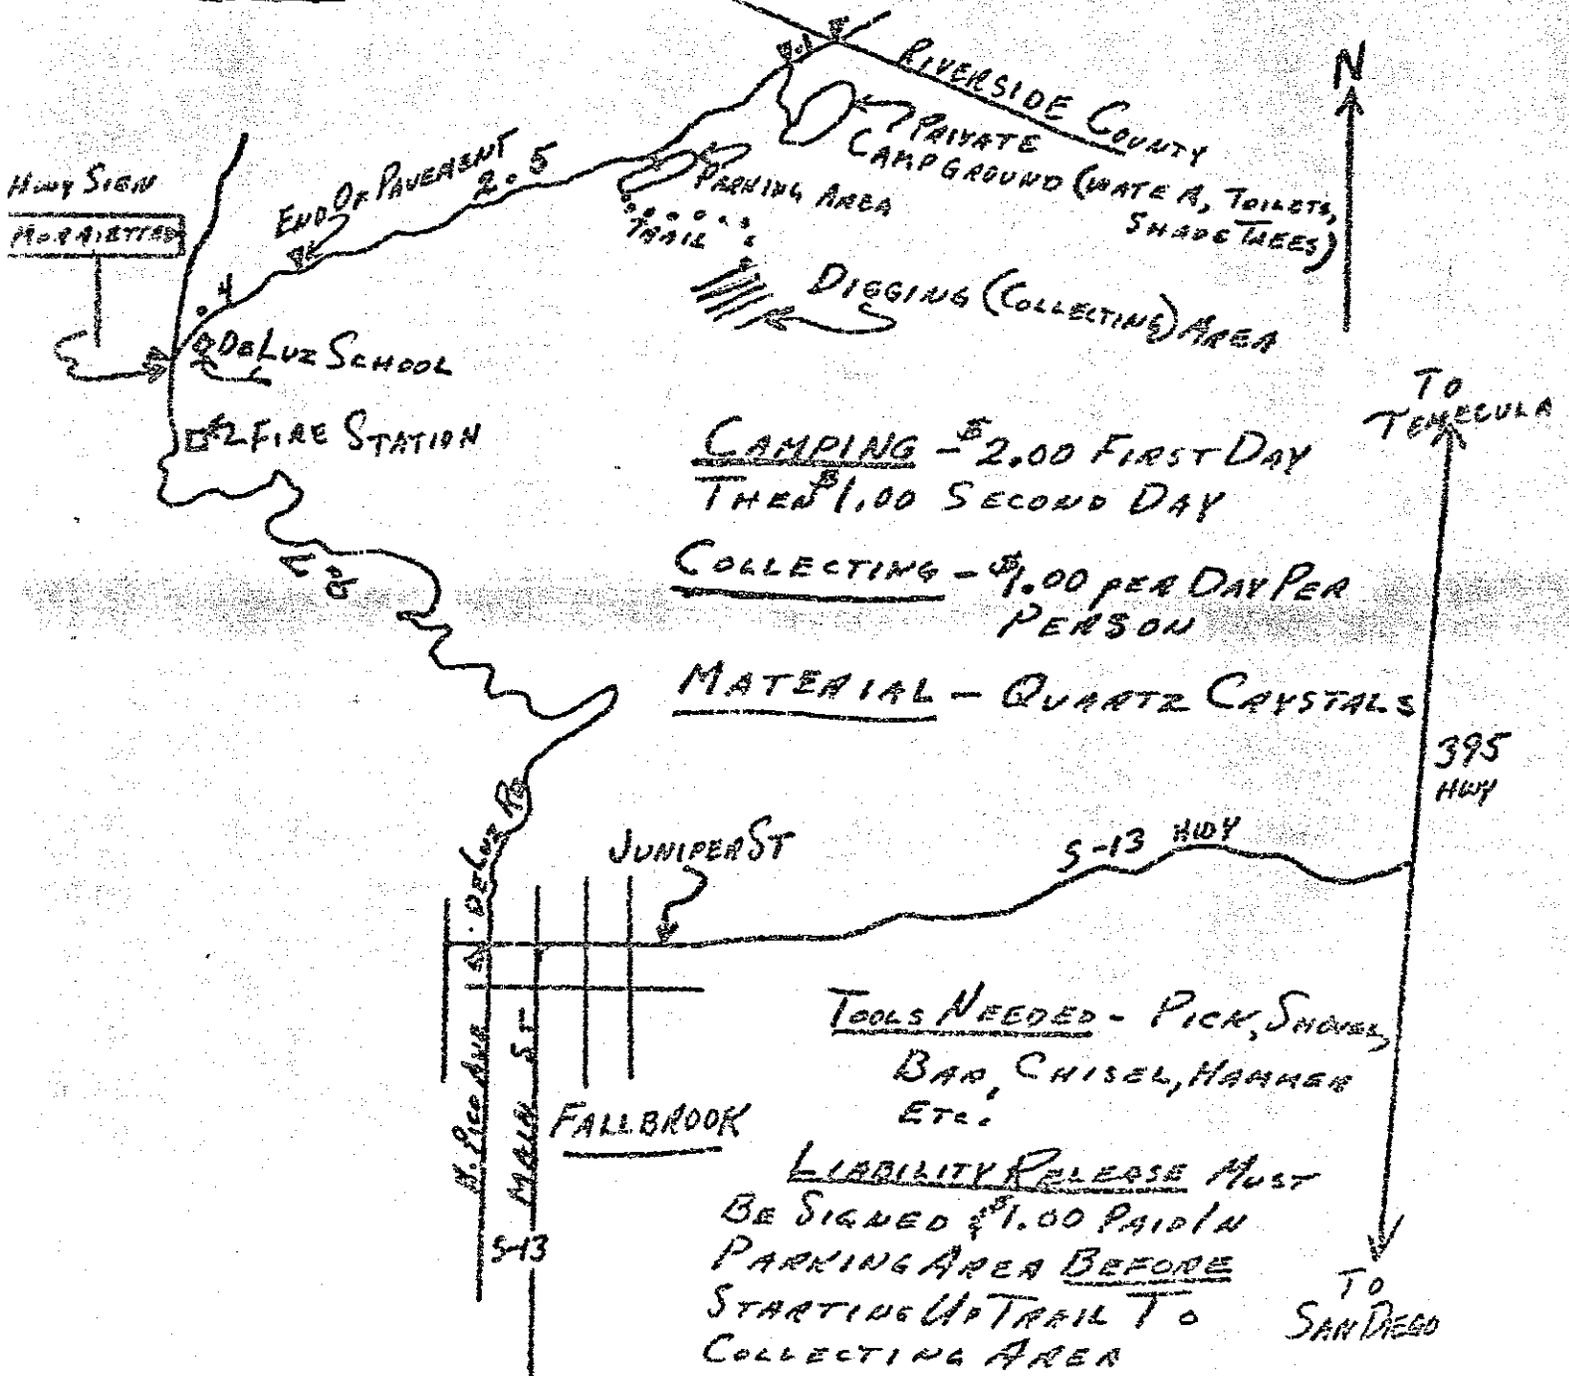 N
RIVERSIDE COUNTY
PRIVATE
CAMPGROUND (WATER, TOILETS,
SHADE TREES)
HWY SIGN
END OF PAVEMENT
2.5
PARKING AREA
TRAIL
.4
DIGGING (COLLECTING) AREA
DELUZ SCHOOL
FIRE STATION
TO
TEMECULA
CAMPING - $2.00 FIRST DAY
THEN $1.00 SECOND DAY
COLLECTING - $1.00 PER DAY PER
PERSON
MATERIAL - QUARTZ CRYSTALS
395
HWY
DELUZ RD
JUNIPER ST
S-13 HWY
N. PICO AVE
MAIN ST
S-13
FALLBROOK
TOOLS NEEDED - PICK, SHOVEL,
BAR, CHISEL, HAMMER
ETC.
LIABILITY RELEASE MUST
BE SIGNED & $1.00 PAID IN
PARKING AREA BEFORE
STARTING UP TRAIL TO
COLLECTING AREA
TO
SAN DIEGO